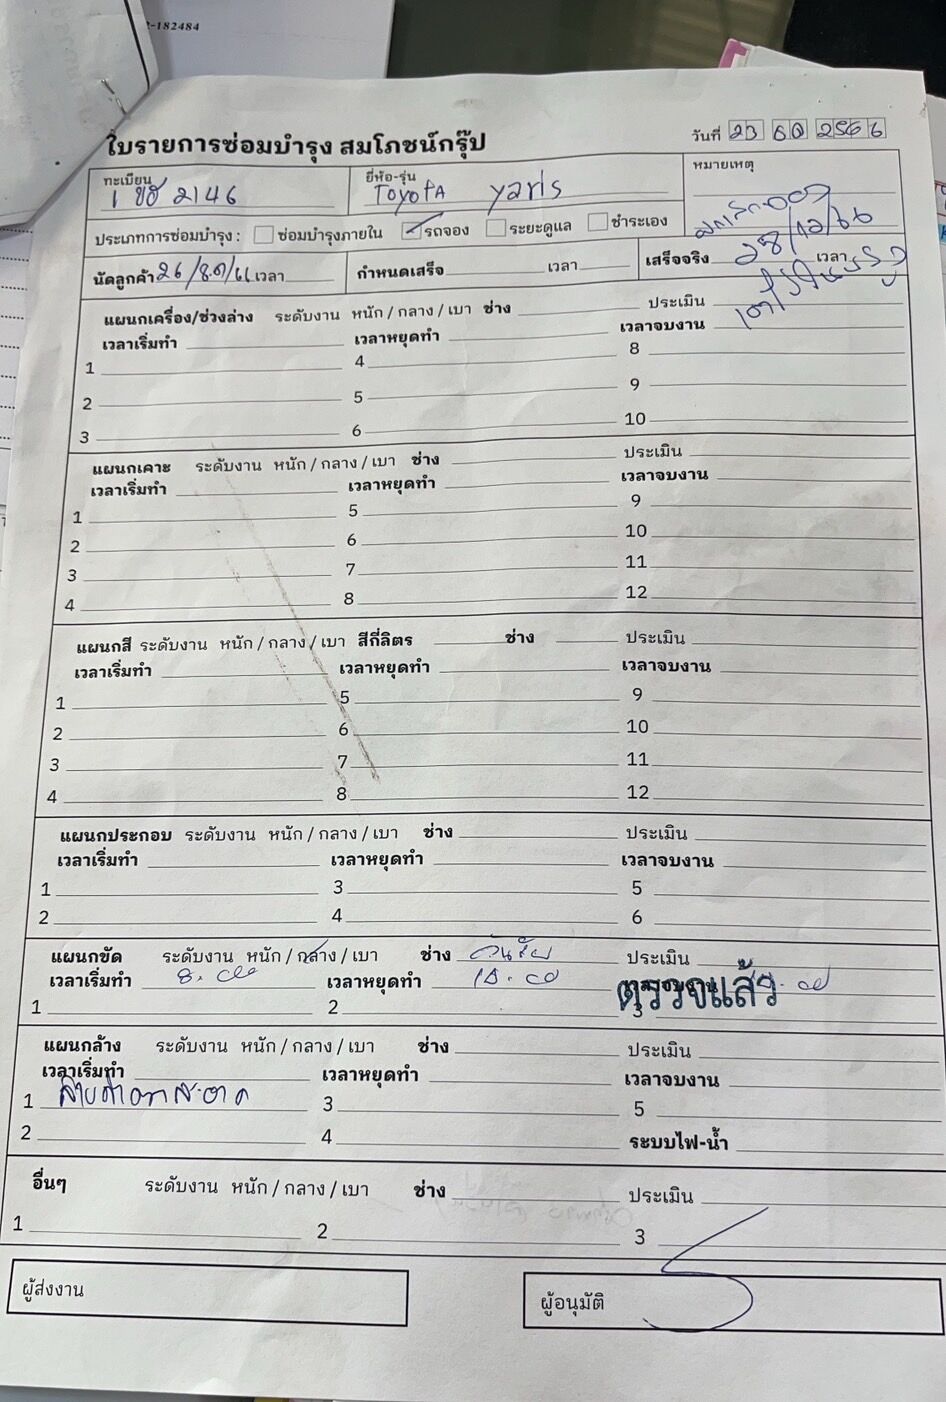 -182484
ใบรายการซ่อมบำรุง สมโภชน์กรุ๊ป
วันที่ 23 60 2566
ทะเบียน ยี่ห้อ-รุ่น หมายเหตุ
2146 Toyota yaris
ประเภทการซ่อมบำรุง : ซ่อมบำรุงภายใน รถจอง ระยะดูแล ชำระเอง
นัดลูกค้า เวลา กำหนดเสร็จ เวลา เสร็จจริง 28/12/66 เวลา
แผนกเครื่อง/ช่วงล่าง ระดับงาน หนัก / กลาง / เบา ช่าง ประเมิน
เวลาเริ่มทำ เวลาหยุดทำ เวลาจบงาน
1 4 8
2 5 9
3 6 10
แผนกเคาะ ระดับงาน หนัก / กลาง / เบา ช่าง ประเมิน
เวลาเริ่มทำ เวลาหยุดทำ เวลาจบงาน
1 5 9
2 6 10
3 7 11
4 8 12
แผนกสี ระดับงาน หนัก / กลาง / เบา สีกี่ลิตร ช่าง ประเมิน
เวลาเริ่มทำ เวลาหยุดทำ เวลาจบงาน
1 5 9
2 6 10
3 7 11
4 8 12
แผนกประกอบ ระดับงาน หนัก / กลาง / เบา ช่าง ประเมิน
เวลาเริ่มทำ เวลาหยุดทำ เวลาจบงาน
1 3 5
2 4 6
แผนกขัด ระดับงาน หนัก / กลาง / เบา ช่าง ประเมิน
เวลาเริ่มทำ เวลาหยุดทำ เวลาจบงาน
ตรวจแล้ว
1 2 3
แผนกล้าง ระดับงาน หนัก / กลาง / เบา ช่าง ประเมิน
เวลาเริ่มทำ เวลาหยุดทำ เวลาจบงาน
1 3 5
2 4 ระบบไฟ-น้ำ
อื่นๆ ระดับงาน หนัก / กลาง / เบา ช่าง ประเมิน
1 2 3
ผู้ส่งงาน ผู้อนุมัติ